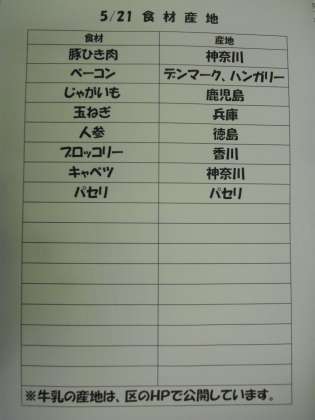 5/21 食材産地
食材 産地
豚ひき肉 神奈川
ベーコン デンマーク、ハンガリー
じゃがいも 鹿児島
玉ねぎ 兵庫
人参 徳島
ブロッコリー 香川
キャベツ 神奈川
パセリ パセリ
※牛乳の産地は、区のHPで公開しています。